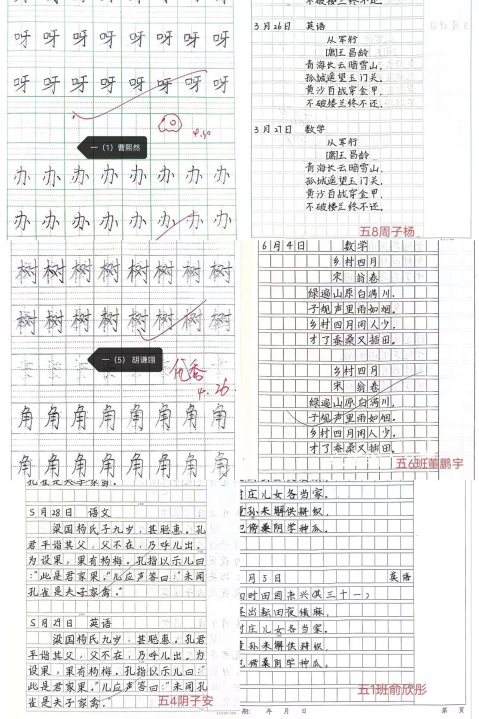 呀呀呀呀呀呀呀呀
呀呀呀呀呀呀呀呀
4.30
一（1）曹熙然
办办办办办办办办
办办办办办办办办
不破楼兰终不还。
3月26日 英语
从军行
[唐]王昌龄
青海长云暗雪山，
孤城遥望玉门关。
黄沙百战穿金甲，
不破楼兰终不还。
3月27日 数学
从军行
[唐]王昌龄
青海长云暗雪山，
孤城遥望玉门关。
黄沙百战穿金甲，
不破楼兰终不还。
五8周子杨
树树树树树树树树
树树树树树树树树
一（5）胡谦翊
优秀
4.26
角角角角角角角角
角角角角角角角角
6月4日 数学
乡村四月
宋 翁卷
绿遍山原白满川，
子规声里雨如烟。
乡村四月闲人少，
才了蚕桑又插田。
乡村四月
宋 翁卷
绿遍山原白满川，
子规声里雨如烟。
乡村四月闲人少，
才了蚕桑又插田。
五6班董鹏宇
孔雀是夫子家禽。
5月28日 语文
梁国杨氏子九岁，甚聪惠。孔
君平诣其父，父不在，乃呼儿出。
为设果，果有杨梅。孔指以示儿曰
：“此是君家果。”儿应声答曰：“未闻
孔雀是夫子家禽。”
5月29日 英语
梁国杨氏子九岁，甚聪惠。孔君
平诣其父，父不在，乃呼儿出。为
设果，果有杨梅。孔指以示儿曰：“
此是君家果。”儿应声答曰：“未闻孔
雀是夫子家禽。”
五4阴子安
村庄儿女各当家。
童孙未解供耕织，
也傍桑阴学种瓜。
月5日 英语
四时田园杂兴其三十一
昼出耘田夜绩麻，
村庄儿女各当家。
童孙未解供耕织，
也傍桑阴学种瓜。
五1班俞欣彤
班 年 月 日 第 页